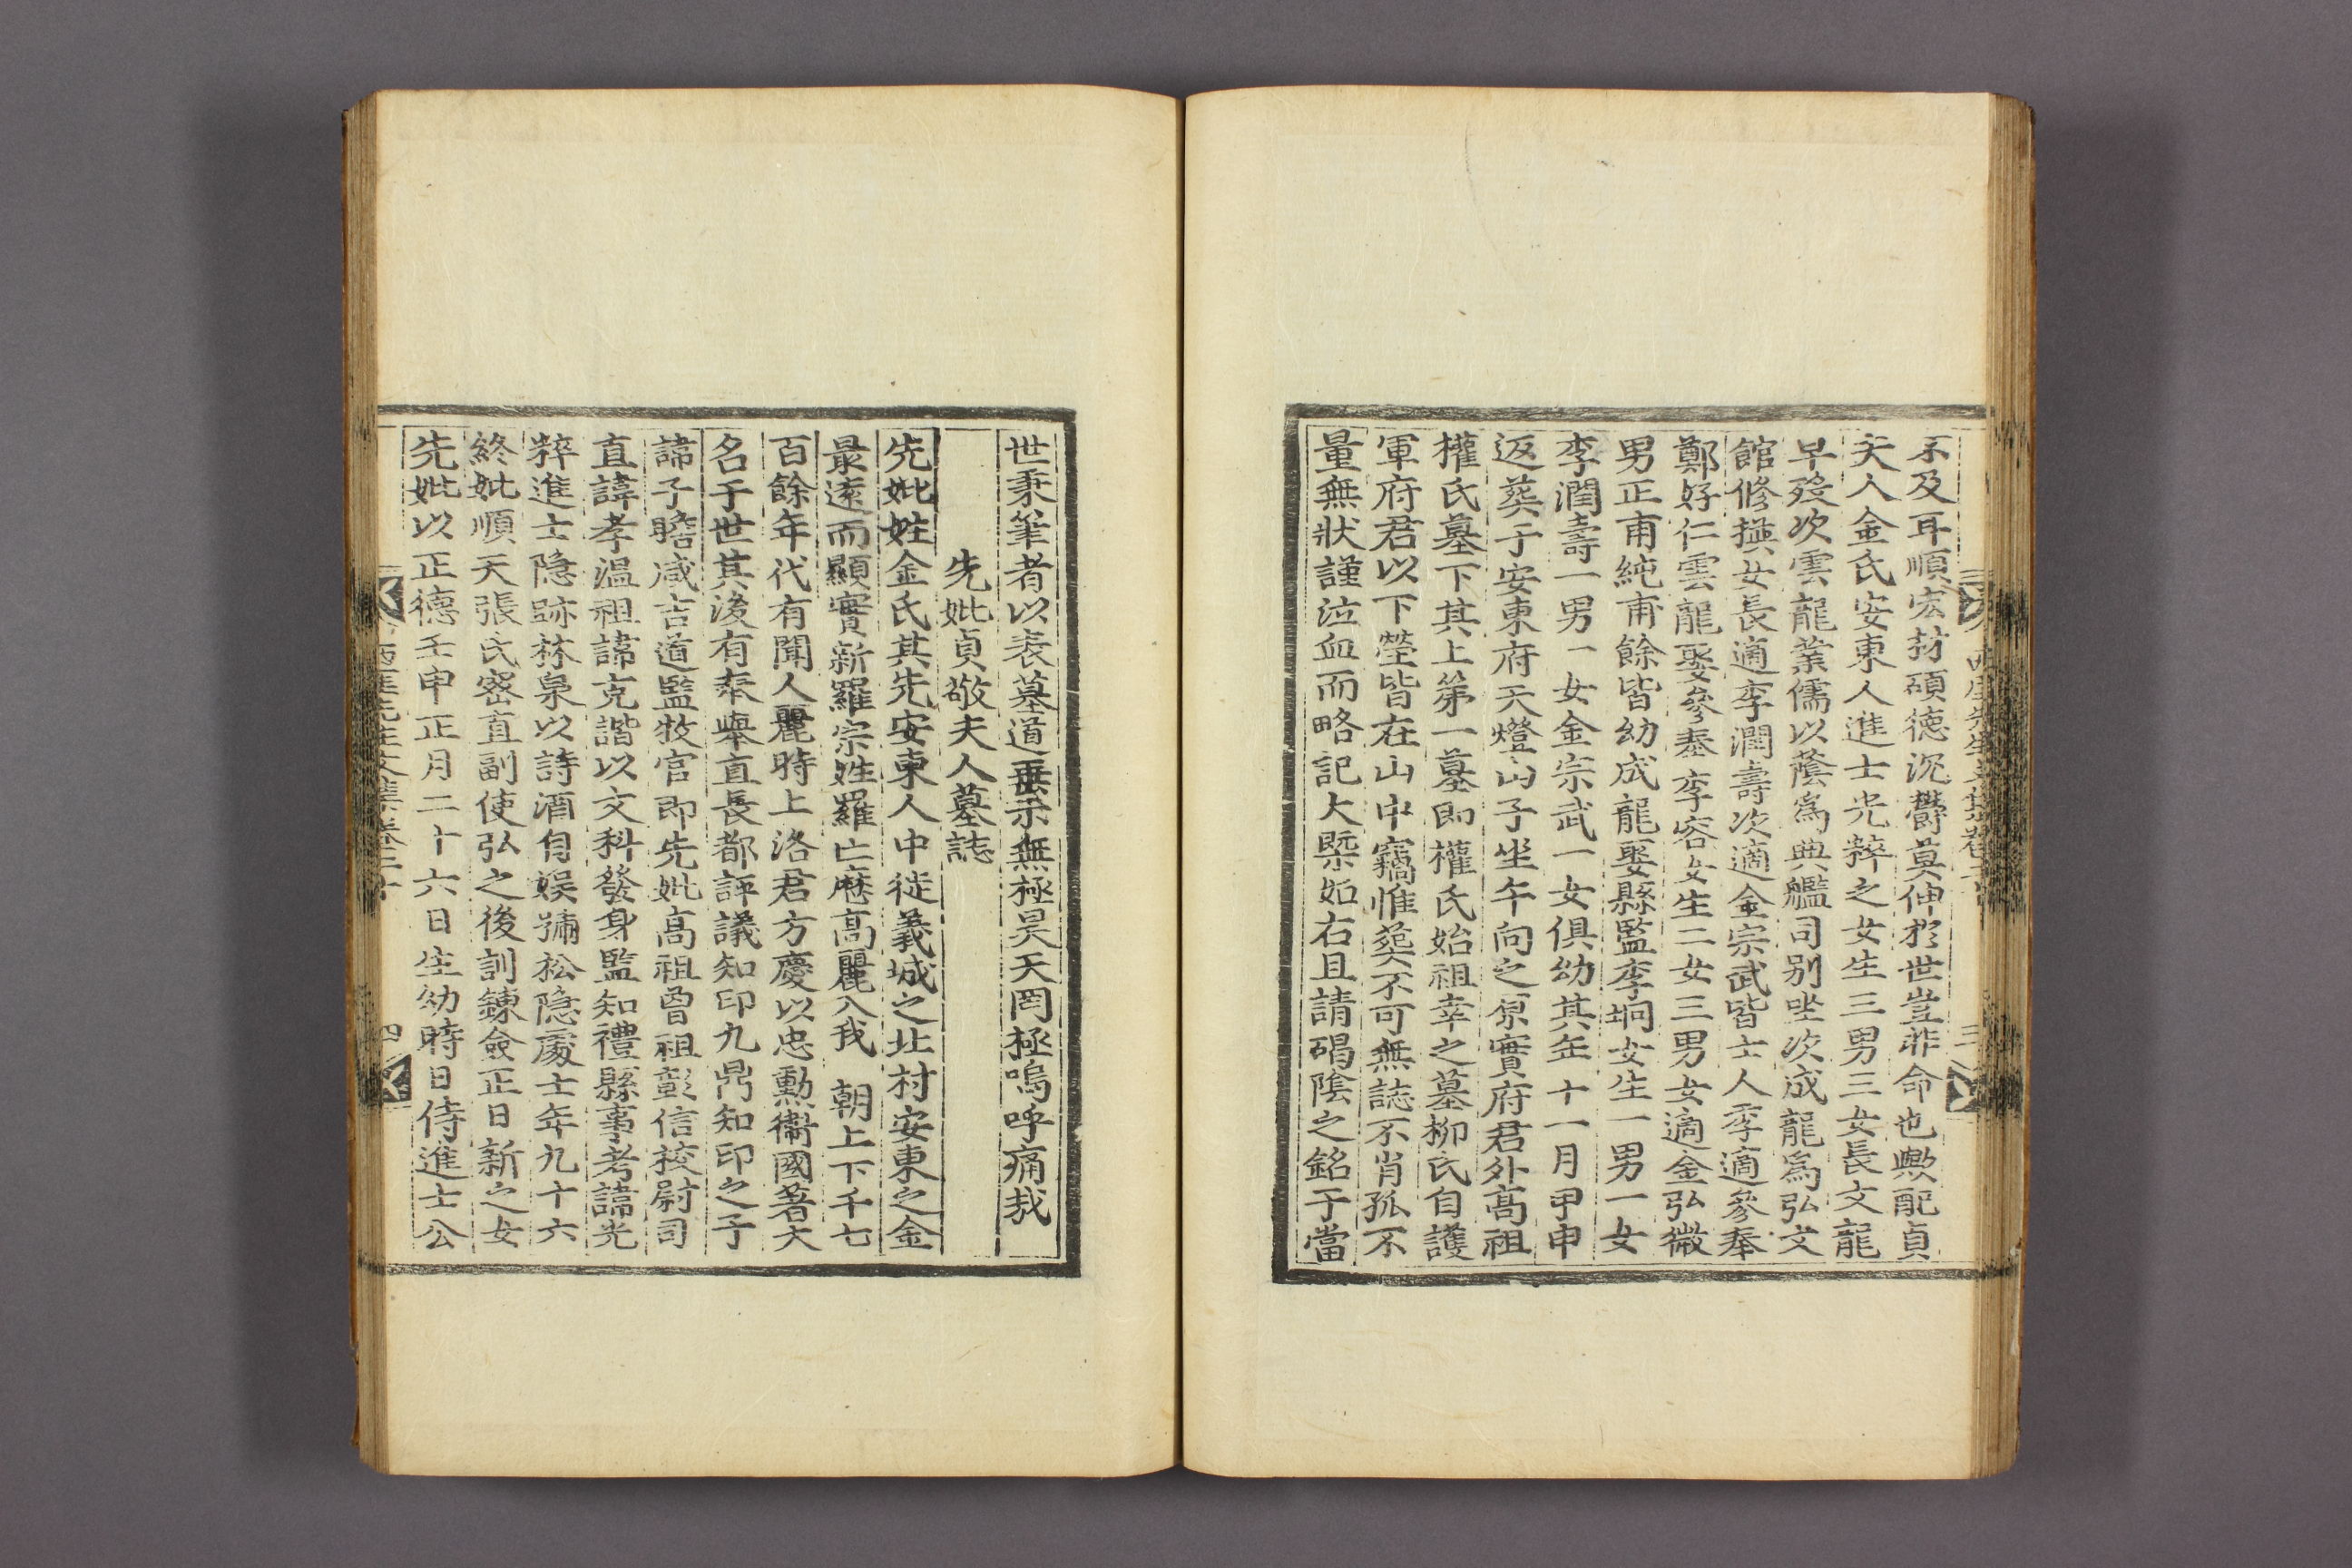 不及耳順宏材碩德沉欝莫伸於世豈非命也歟配貞
夫人金氏安東人進士光粹之女生三男三女長文龍
早歿次雲龍業儒以蔭爲典艦司别坐次成龍爲弘文
館修撰女長適李潤壽次適金宗武皆士人季適參奉
鄭好仁雲龍娶參奉李容女生二女三男女適金弘微
男正甫純甫餘皆幼成龍娶縣監李坰女生一男一女
李潤壽一男一女金宗武一女俱幼其年十一月甲申
返葬于安東府天燈山子坐午向之原實府君外高祖
權氏墓下其上第一墓即權氏始祖幸之墓柳氏自護
軍府君以下塋皆在山中竊惟葬不可無誌不肖孤不
量無狀謹泣血而略記大槩如右且請碣陰之銘于當
世秉筆者以表墓道垂示無極昊天罔極嗚呼痛哉
先妣貞敬夫人墓誌
先妣姓金氏其先安東人中徙義城之北村安東之金
最遠而顯實新羅宗姓羅亡歷高麗入我 朝上下千七
百餘年代有聞人麗時上洛君方慶以忠勳衛國著大
名于世其後有奉擧直長都評議知印九鼎知印之子
諱子瞻咸吉道監牧官即先妣高祖曾祖彭信校尉司
直諱孝温祖諱克諧以文科發身監知禮縣事考諱光
粹進士隐跡林泉以詩酒自娱號松隐處士年九十六
終妣順天張氏密直副使弘之後訓鍊僉正日新之女
先妣以正德壬申正月二十六日生幼時日侍進士公
西厓先生文集卷二十
四